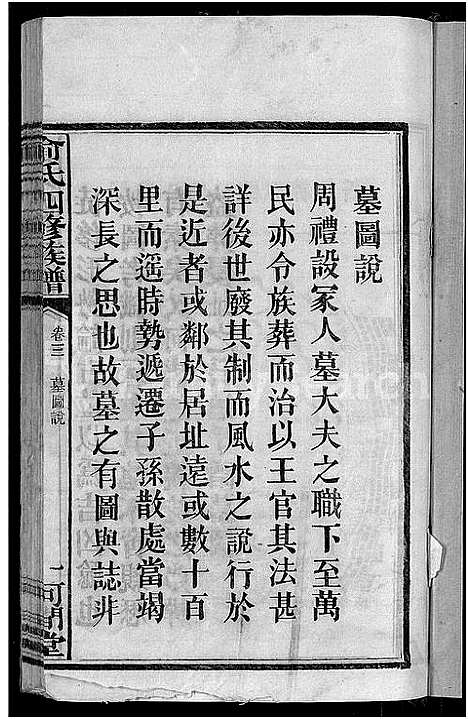 墓圖說
周禮設冢人墓大夫之職下至萬
民亦令族葬而治以王官其法甚
詳後世廢其制而風水之說行於
是近者或鄰於居址遠或數十百
里而遥時勢遞遷子孫散處當竭
深長之思也故墓之有圖與誌非
俞氏四修族譜
卷三 墓圖說
一